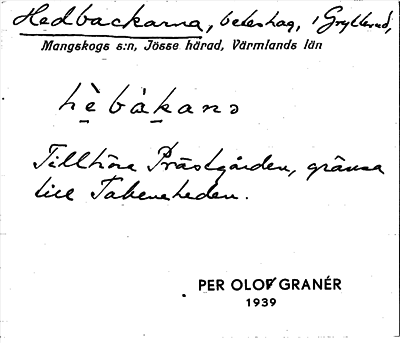 Hedbackarna, beteshag, i Gryttved,
Mangskogs s:n, Jösse härad, Värmlands län
hè̱ bàḵanə
Tillhöra Prästgården, gränsa
till Takeneheden.
PER OLOF GRANÉR
1939